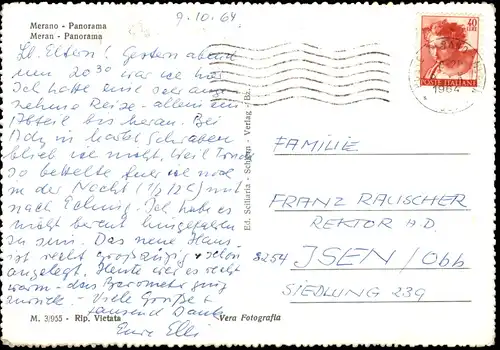 9.10.64
Merano - Panorama
Meran - Panorama
Lb. Eltern! Gestern abend
um 20 30 war ich hier.
Ich hatte eine sehr ange
nehme Reise - allein im
Abteil bis Meran. Bei
blieb ich nicht. Weil
so
in der Nacht (1/2 12h) mit
nach Ich habe es
nicht bereut hingefahren
zu sein. Das neue Haus
ist recht großzügig + schön
angelegt. Heute war es recht
warm - das Barometer ging
zurück - Viele Grüße +
tausend Dank
Eure Elli
M. 3/955 - Rip. Vietata
Vera Fotografia
Ed. Scillaria - Schlern - Verlag - Bz.
40
LIRE
1964
POSTE ITALIANE
FAMILIE
FRANZ RAUSCHER
REKTOR A.D.
8254 ISEN/Obb
SIEDLUNG 239